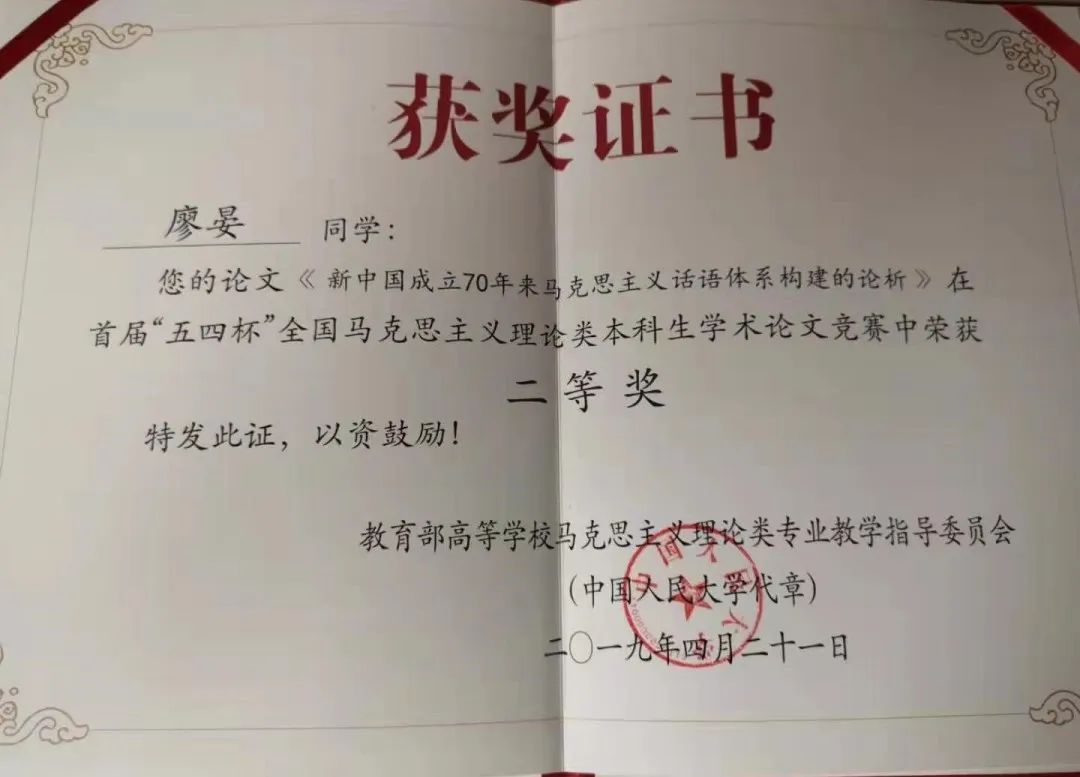 获奖证书
廖晏 同学：
您的论文《新中国成立70年来马克思主义话语体系构建的论析》在
首届“五四杯”全国马克思主义理论类本科生学术论文竞赛中荣获
二等奖
特发此证，以资鼓励！
教育部高等学校马克思主义理论类专业教学指导委员会
（中国人民大学代章）
二〇一九年四月二十一日